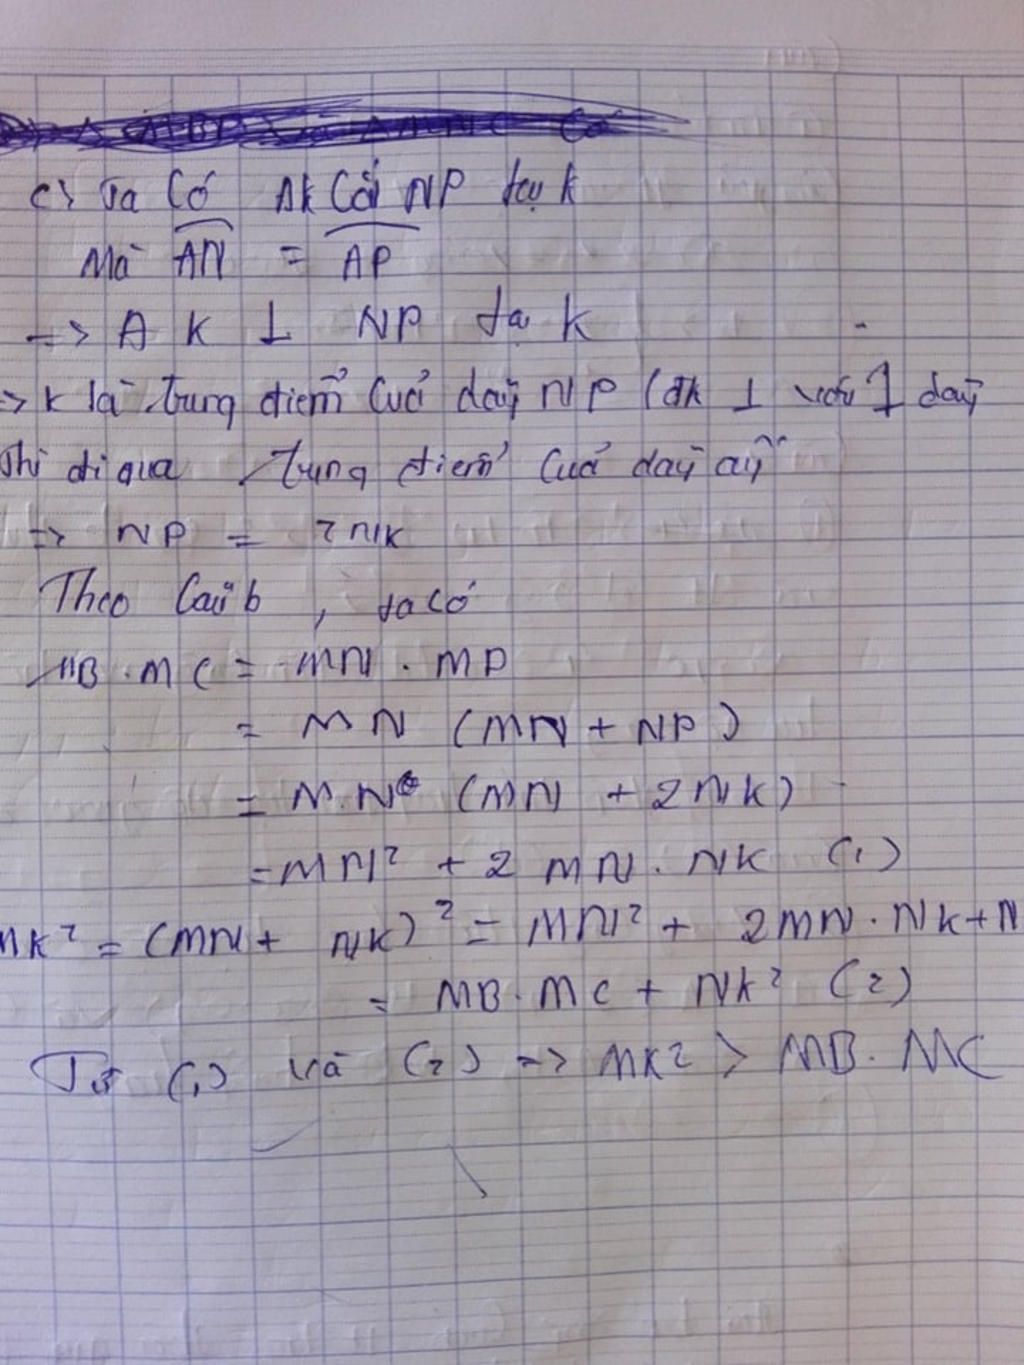 c) Ta có AK cắt NP tại K
Mà AN = AP
=> AK ⊥ NP tại K
=> K là trung điểm của dây NP (đk ⊥ với 1 dây
thì đi qua trung điểm của dây ấy
=> NP = 2NK
Theo câu b, ta có
MB.MC = MN.MP
= MN (MN + NP)
= MN (MN + 2NK)
= MN² + 2 MN.NK (1)
MK² = (MN + NK)² = MN² + 2MN.NK+N
= MB.MC + NK² (2)
Từ (1) và (2) => MK² > MB.MC